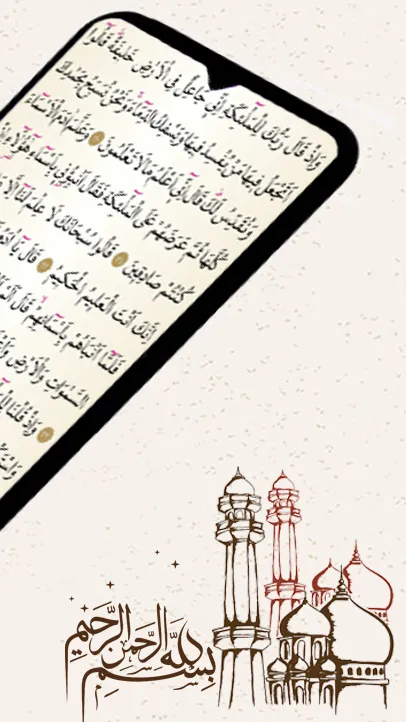 وَاِذْ قَالَ رَبُّكَ لِلْمَلٰٓئِكَةِ اِنّٖي جَاعِلٌ فِي الْاَرْضِ خَلٖيفَةً قَالُٓوا
اَتَجْعَلُ فٖيهَا مَنْ يُفْسِدُ فٖيهَا وَيَسْفِكُ الدِّمَٓاءَ وَنَحْنُ نُسَبِّحُ بِحَمْدِكَ
وَنُقَدِّسُ لَكَ قَالَ اِنّٖٓي اَعْلَمُ مَا لَا تَعْلَمُونَ وَعَلَّمَ اٰدَمَ الْاَسْمَٓاءَ
كُلَّهَا ثُمَّ عَرَضَهُمْ عَلَى الْمَلٰٓئِكَةِ فَقَالَ اَنْبِؤُ۫نٖي بِاَسْمَٓاءِ هٰٓؤُلَٓاءِ
كُنْتُمْ صَادِقٖينَ قَالُوا سُبْحَانَكَ لَا عِلْمَ لَنَٓا
اِنَّكَ اَنْتَ الْعَلٖيمُ الْحَكٖيمُ قَالَ يَٓا
فَلَمَّٓا اَنْبَاَهُمْ بِاَسْمَٓائِهِمْ قَالَ
السَّمٰوَاتِ وَالْاَرْضِ
وَاِذْ قُلْنَا
بِسْمِ اللّٰهِ الرَّحْمٰنِ الرَّحِيمِ